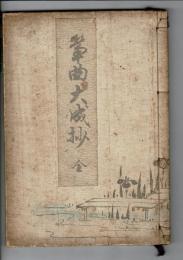 箏曲大成抄 全